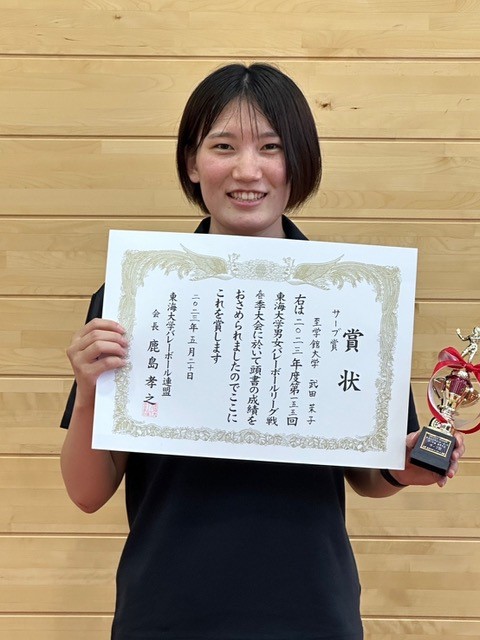 賞状
サーブ賞
至学館大学 武田 茉子
右は二〇二三年度第一三三回
東海大学男女バレーボールリーグ戦
春季大会に於いて頭書の成績を
おさめられましたのでここに
これを賞します
二〇二三年五月二十日
東海大学バレーボール連盟
会長 鹿島孝之